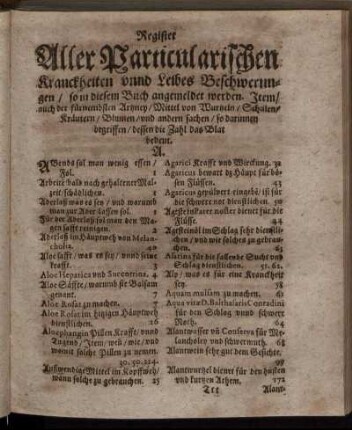 Register
Aller Particularischen
Kranckheiten vnnd Leibes Beschwerun-
gen / so in diesem Buch angemeldet werden. Item/
auch der fürnembsten Artzney / Mittel von Wurtzeln / Schalen,
Kräutern / Blumen / vnd andern sachen / so darinnen
begriffen / dessen die Zahl das Blat
bedeut.
A.
Abends sol man wenig essen /
Fol.
Arbeite bald nach gehaltener Mal-
zeit schädlichen.
Aderlaß wan es sey / vnd warumb
man zur Ader lassen sol.
Für der Aderlaß sol man den Ma-
gen safft reinigen.
Aderlaß im Häuptweh von Melan-
cholia. 40
Aloe safft / was es sey / vnnd seine
krafft. 3
Aloe Hepatica vnd Succotrina. 4
Aloe Säffte / warumb sie Balsam
genant. 7
Aloe Rosat zu machen. 7
Aloe Rosat im hitzigen Häuptweh
dienstlichen. 26
Aloephangin Pillen Krafft / vnd
Tugend / Item / weß / wie / vnd
womit solche Pillen zu nemen.
30. 50. 224.
Auswendige Mittel im Kopffweh /
wann solche zu gebrauchen. 25
Agarici Krafft vnd Wirckung. 32
Agaricus bewart dz Häupt für bö-
sen Flüssen. 43
Agaricus gepülvert eingebē / ist für
die schwere not dienstlichen. 50
Agtsteinß̈arer noster dienet für die
Flüsse. 44
Agtsteinöl im Schlag sehr dienstli-
chen / vnd wie solches zu gebrau-
chen. 63
Alarina für die fallende Sucht vnd
Schlag dienstlichen. 51. 61.
Alp / was es für eine Kranckheit
sey. 58
Aquam mulsam zu machen. 61
Aqua vitæ D. Balthasaris Conradini
für den Schlag vnnd schwere
Noth. 64
Alantwasser vñ Conserva für Me-
lancholey vnd schwermuth. 68
Alantwein sehr gut dem Gesichte.
97
Alantwurtzel dienet für den husten
vnd kurtzen Athem. 172
Ttt Alant-